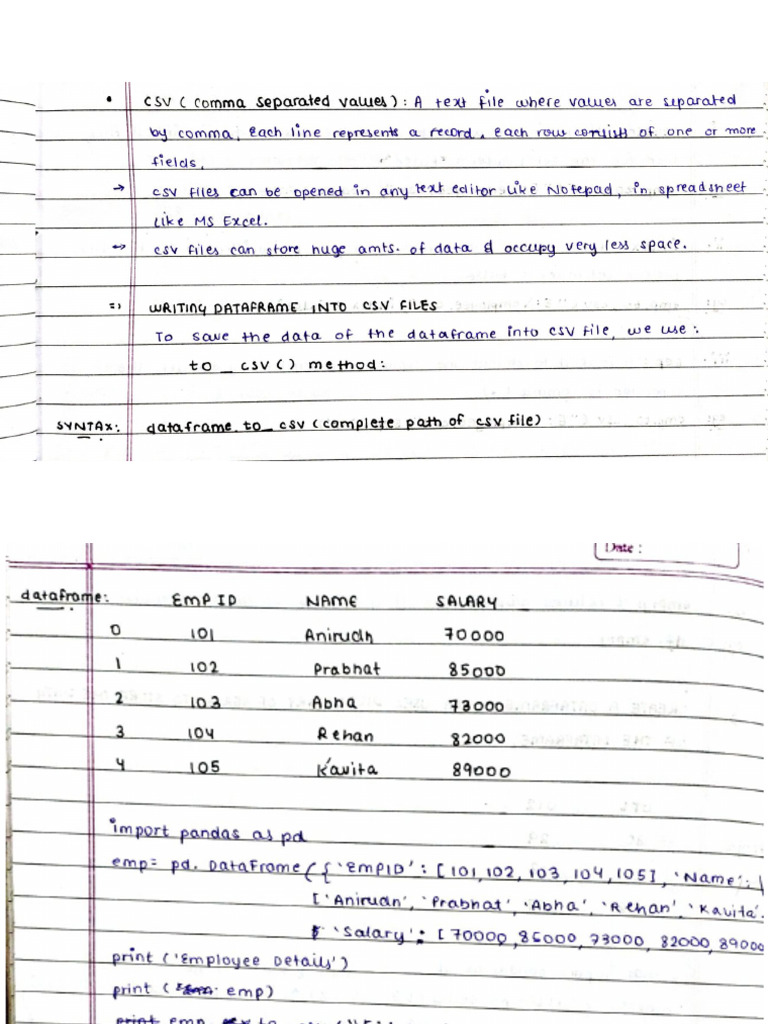 • CSV (comma separated values): A text file where values are separated
by comma. Each line represents a record. each row consists of one or more
fields.
→ CSV files can be opened in any text editor like Notepad, in spreadsheet
like MS Excel.
→ CSV files can store huge amts. of data & occupy very less space.
=> WRITING DATAFRAME INTO CSV FILES
To save the data of the dataframe into csv file, we use:
to _ csv() method:
SYNTAX: dataframe.to_csv (complete path of csv file)
Date :
dataframe: EMP ID NAME SALARY
0 101 Anirudh 70000
1 102 Prabhat 85000
2 103 Abha 73000
3 104 Rehan 82000
4 105 Kavita 89000
import pandas as pd
emp= pd. DataFrame ({'EmpID': [101,102,103,104,105], 'Name':
['Anirudh', 'Prabhat', 'Abha', 'Rehan', 'Kavita'
'Salary': [70000,85000,73000,82000,89000
print ('Employee Details')
print ( emp)
print emp to